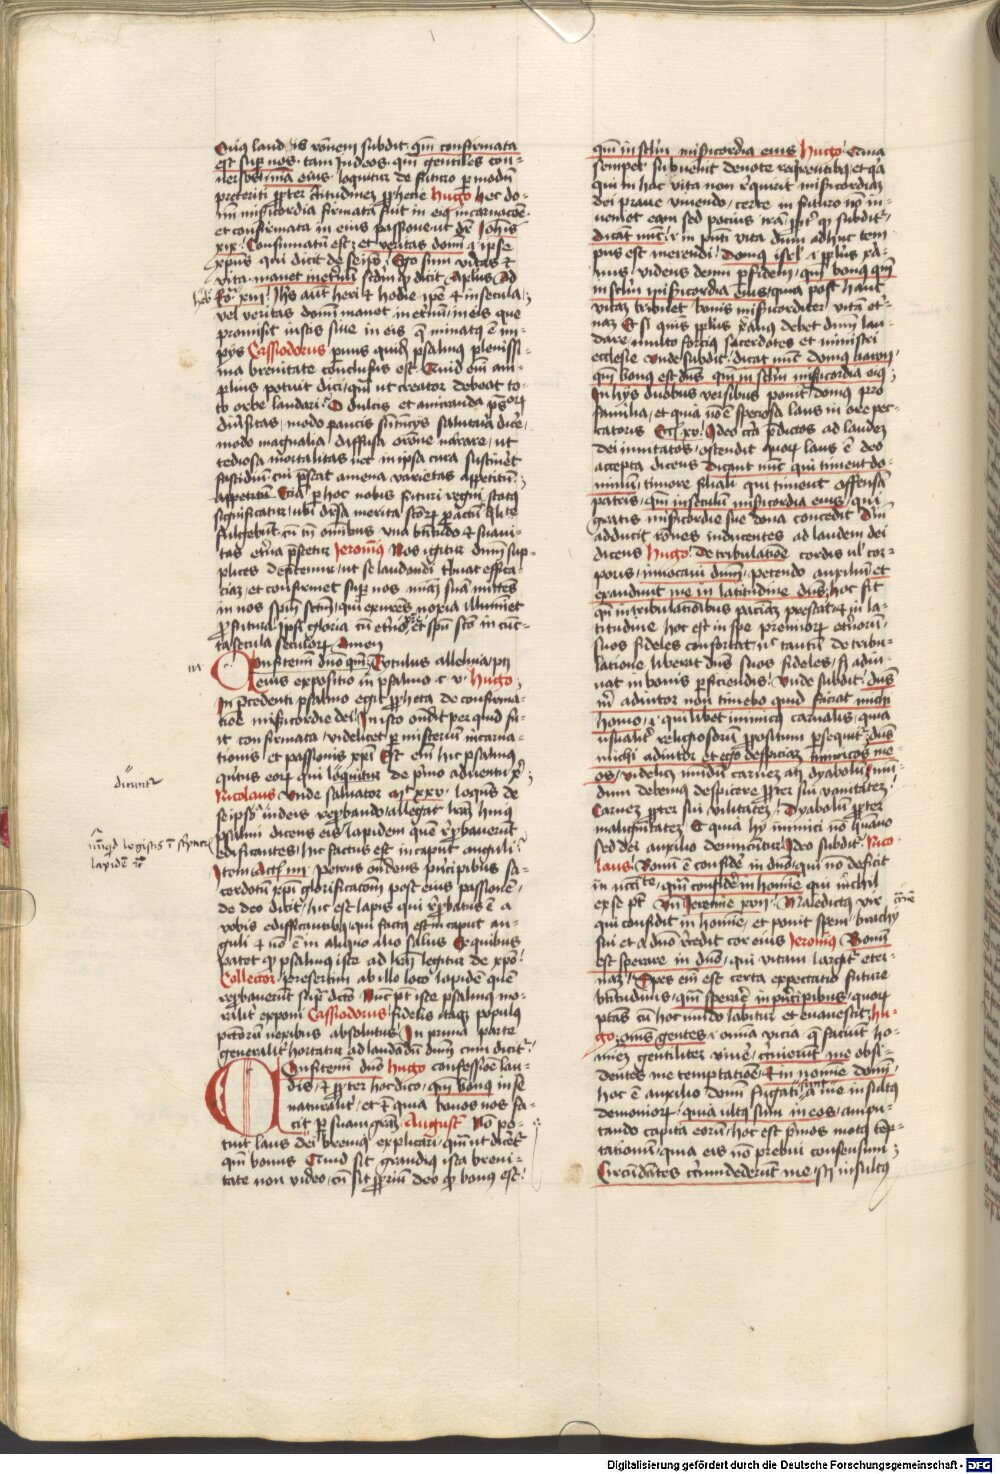 Cuius laudis rationem subdit. qm confirmata
est sup nos. tam Judeos. qm gentiles con-
uersos. mia eius. loquitur de futuro p modum
preteriti ppter certitudinez pphecie Hugo hec do-
mini misericordia firmata fuit in eius incarnacoe.
et confirmata in eius passione vnde Johis
xix. Consummatu est. et veritas domi. q ipse
xpus qui dicit de seipo. Ego sum veritas et
vita. manet ineternu. scdm q dicit Aplus Ad
hebre. xiii. Ihs aut heri et hodie ipe et in secula.
vel veritas domi manet in eternu. in eis que
promisit iustis siue in eis q minatus e im-
pijs Cassiodorus prius quidem psalmus plenissi-
ma breuitate conclusus est. Quid em am-
plius potuit dici. qm ut creator debeat to-
to orbe laudari. O dulcis et amiranda psalmor
diuersitas. modo paucis sentencijs salutaria dicere
modo magnalia diffusa oratione narrare. ut
tediosa mortalitas nec in ipsa cura sustineret
fastidiu. cui pstat amena varietas appetitum.
appetitu. Etia p hoc nobis futuri regni status
significatur. ubi diuersa merita sctor pactu elite
fulgebunt. cu in omnibus vna btitudo et suaui-
tas eterna pstetur Jeronim9 Nos igitur dnm sup-
plices deprecemur. ut se laudandi tribuat effica-
ciaz. et confirmet sup nos miaz suaz. mittens
in nos spm sctm. qui exurens noxia illuminet
pfutura. ipsi gloria cu eterno pre et spu sco in cunc-
ta secula seculorum Amen
Confitemini duo qm. Tytulus alleluia. pt
eius expositio in psalmo c v Hugo
In precedenti psalmo egit ppheta de confirma-
tioe misericordie dei. In isto ondit per quid fu-
it confirmata. videlicet p misterium incarna-
tionis et passionis xpi Est em hic psalmus
quintus eorum qui loquntur de primo aduentu xpi
Nicolaus Vnde saluator mt xxv. loquens de
seipso a iudeis reprobando. allegat hunc
psalmi dicens eis lapidem quem reprobauerunt
edificantes. hic factus est in caput anguli
Item Act iiii. petrus ondens principibus sa-
cerdotum xpi glorificacom post eius passionem
de deo dicit. hic est lapis qui reprobatus e a
vobis edificantibus qui factus est in caput an-
guli et no e in aliquo alio salus. Ex quibus
patet q psalmus iste ad lram legitur de xpo
Collector. presertim ab illo loco lapide que
reprobauerunt. supra dicto. Nunc pt iste psalmus mo-
raliter exponi Cassiodorus fidelis itaque populus
pctorum nexibus absolutus In prima parte
generaliter hortatur ad laudandu dnm cum dicit.
Confitemini duo Hugo confessioe lau-
dis. et ppter hoc dico. qm bonus in se
naturaliter. et est quia bonos nos fa-
cit p suam graz. August9 No po-
tuit laus dei breuius explicari. qm ut dicet
qm bonus Quid sit grandius ista breui-
tate non video. cu sit pprium deo q bonus est.
dicuntur
nuquid legistis i scripturis
lapide que
qm in sclm misericordia eius Hugo Quia
semper subuenit deuote requirentibus. et quia
qui in hac vita non requirit misericordiaz
dei praue viuendo. certe in futuro no in-
ueniet eam sed pocius iram. ppter quod subditur.
dicat nunc. i. in pnti vita dum adhuc tem-
pus est merendi. Domus isrl. i pplus xia-
nus. videns deum p fidem. qm bonus qm
in sclm misericordia eius. quia post hanc
vitaz tribuet bonis misericorditer vita eter-
naz Et si quis pplus xanus debet dnm lau-
dare multo forcius sacerdotes et ministri
ecclesie Vnde subdit. dicat nunc domus aaron.
qm bonus est dns. qm in sclm misericordia eius.
In hijs duobus versibus ponit domus pro
familia. et quia no e speciosa laus in ore pec-
catoris Eccl xv. Ideo circa predictos ad laudez
dei inuitatos. ostendit quorum laus e deo
accepta dicens dicant nunc qui timent do-
minum. timore filiali qui timent offensam
patris. qm in seculum misericordia eius. qui
gratis misericordie sue dona concedit Dein
adducit rones inducentes ad laudem dei
dicens Hugo De tribulatione cordis vel cor-
poris. inuocaui dnm. petendo auxilium. et
exaudiuit me in latitudine dns. hoc fit
qn in tribulationibus patienciaz prestat. et in la-
titudine hoc est in spe premiorum eternorum
suos fideles confortat. no tantum de tribu-
latione liberat dns suos fideles. sed adiu-
uat in bonis perficiendis. Vnde subdit. dns
m adiutor non timebo quid faciat michi
homo. i. quilibet inimicus carnalis. quia
vsualiter religiosorum propositum psequitur. dns
michi adiutor et ego despiciaz inimicos me-
os. videlicet mundum carnez atque dyabolum. mun-
dum debemus despicere ppter sui vanitatez.
Carnez ppter sui vilitatez. Dyabolum ppter
malignitatez. Et quia hij inimici no humano
sed dei auxilio deuincuntur. Ideo subdit. Nico-
laus. Bonum e confidere in duo. qui no deficit
in necessitate. qm confidere in homine qui nichil
ex se pt Vnde Jeremie xvii. Maledictus vir
qui confidit in homine. et ponit spem brachij
sui et a duo recedit cor eius Jeronim9 Bonum
est sperare in duo. qui vitam largitur eter-
naz. Spes em est certa expectatio future
btitudinis. qm sperare in principibus. quorum
ptas cu hoc mundo labitur et euanescit. Hu-
go. omnes gentes. i. omnia vicia que faciunt ho-
minez gentiliter viuere. circuierunt me obsi-
dentes me temptatione. et in nomine domi.
hoc e auxilio domi fugati sunt a me insultus
demoniorum. quia vltus sum in eos. ampu-
tando capita eorum. hoc est primos motus temp-
tationum. quia eis no prebui consensum.
Circundantes circumdederunt me. si insultus